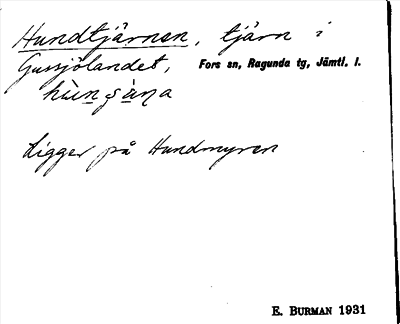 Hundtjärnen, tjärn i
Gussjölandet, Fors sn, Ragunda tg, Jämtl. l.
Ligger på Hundmyren
E. BURMAN 1931